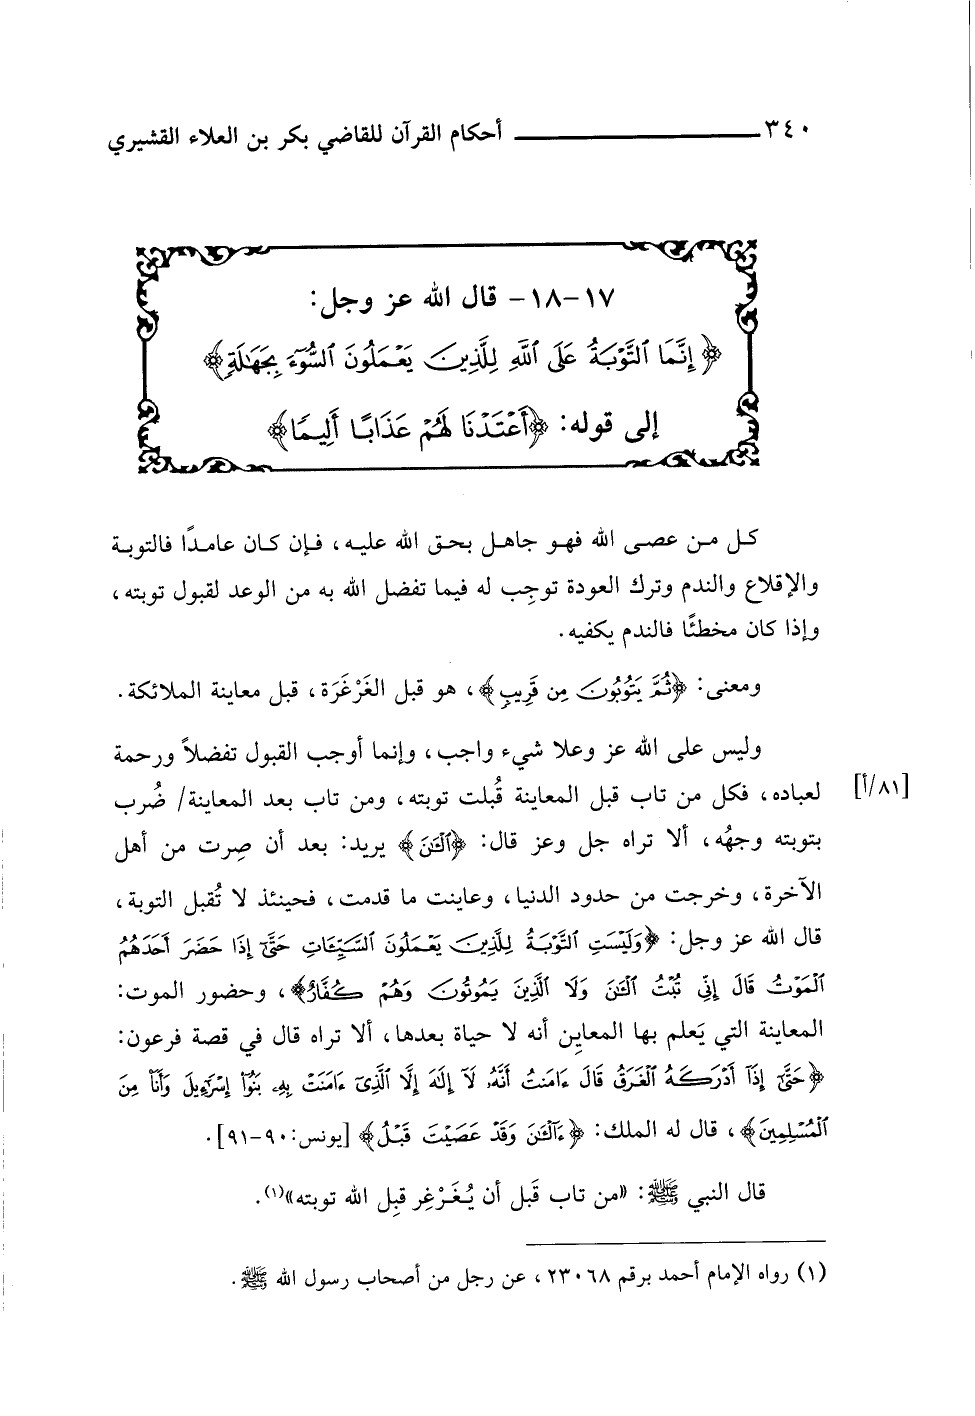 ٣٤٠ أحكام القرآن للقاضي بكر بن العلاء القشيري
١٧-١٨- قال الله عز وجل:
﴿إِنَّمَا ٱلتَّوۡبَةُ عَلَى ٱللَّهِ لِلَّذِينَ يَعۡمَلُونَ ٱلسُّوٓءَ بِجَهَٰلَةٖ﴾
إلى قوله: ﴿أَعۡتَدۡنَا لَهُمۡ عَذَابًا أَلِيمٗا﴾
كل من عصى الله فهو جاهل بحق الله عليه، فإن كان عامدًا فالتوبة
والإقلاع والندم وترك العودة توجِب له فيما تفضل الله به من الوعد لقبول توبته،
وإذا كان مخطئًا فالندم يكفيه.
ومعنى: ﴿ثُمَّ يَتُوبُونَ مِن قَرِيبٖ﴾، هو قبل الغَرْغَرَة، قبل معاينة الملائكة.
وليس على الله عز وعلا شيء واجب، وإنما أوجب القبول تفضلاً ورحمة
لعباده، فكل من تاب قبل المعاينة قُبلت توبته، ومن تاب بعد المعاينة/ ضُرب
[٨١/أ]
بتوبته وجهُه، ألا تراه جل وعز قال: ﴿ٱلۡـَٰٔنَ﴾ يريد: بعد أن صِرت من أهل
الآخرة، وخرجت من حدود الدنيا، وعاينت ما قدمت، فحينئذ لا تُقبل التوبة،
قال الله عز وجل: ﴿وَلَيۡسَتِ ٱلتَّوۡبَةُ لِلَّذِينَ يَعۡمَلُونَ ٱلسَّيِّـَٔاتِ حَتَّىٰٓ إِذَا حَضَرَ أَحَدَهُمُ
ٱلۡمَوۡتُ قَالَ إِنِّي تُبۡتُ ٱلۡـَٰٔنَ وَلَا ٱلَّذِينَ يَمُوتُونَ وَهُمۡ كُفَّارٌ﴾، وحضور الموت:
المعاينة التي يَعلم بها المعاين أنه لا حياة بعدها، ألا تراه قال في قصة فرعون:
﴿حَتَّىٰٓ إِذَآ أَدۡرَكَهُ ٱلۡغَرَقُ قَالَ ءَامَنتُ أَنَّهُۥ لَآ إِلَٰهَ إِلَّا ٱلَّذِيٓ ءَامَنَتۡ بِهِۦ بَنُوٓاْ إِسۡرَٰٓءِيلَ وَأَنَا۠ مِنَ
ٱلۡمُسۡلِمِينَ﴾، قال له الملك: ﴿ءَآلۡـَٰٔنَ وَقَدۡ عَصَيۡتَ قَبۡلُ﴾ [يونس: ٩٠-٩١].
قال النبي ﷺ: «من تاب قَبل أن يُغَرْغِر قبِل الله توبته»(١).
(١) رواه الإمام أحمد برقم ٢٣٠٦٨، عن رجل من أصحاب رسول الله ﷺ.